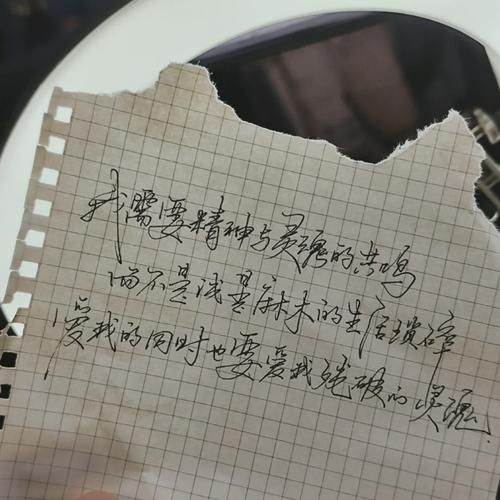 我需要精神与灵魂的共鸣
而不是浅显麻木的生活琐碎
爱我的同时也要爱我残破的灵魂